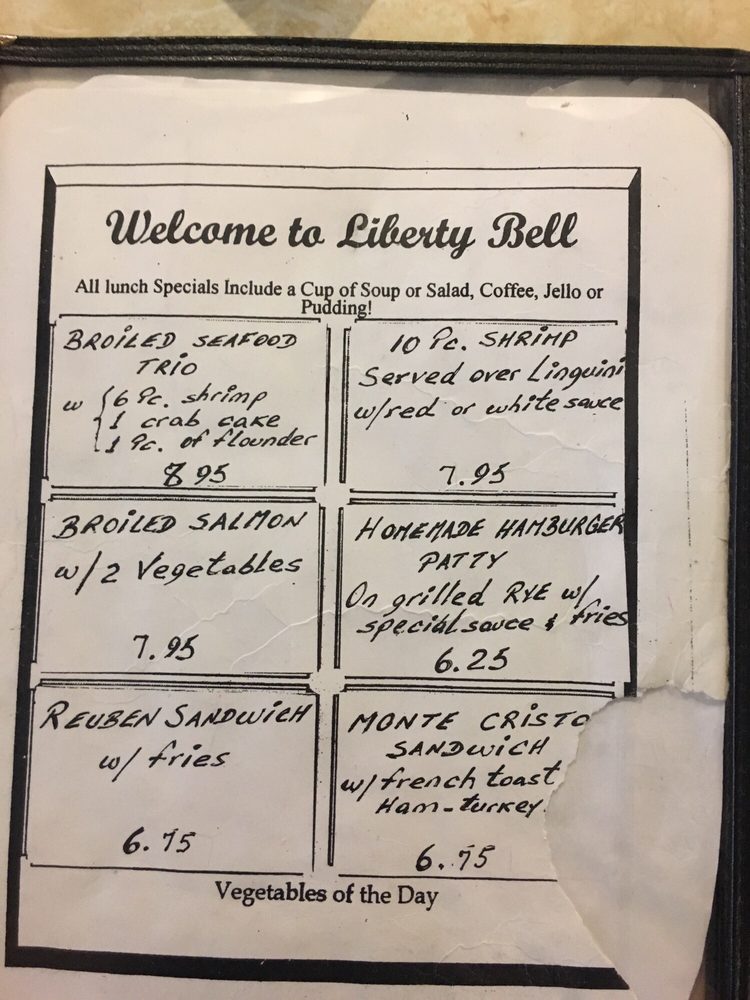 Welcome to Liberty Bell
All lunch Specials Include a Cup of Soup or Salad, Coffee, Jello or
Pudding!
BROILED SEAFOOD
TRIO
w { 6 Pc. shrimp
1 crab cake
1 Pc. of flounder
8 95
10 Pc. SHRIMP
Served over Linguini
w/red or white sauce
7.95
BROILED SALMON
w/2 Vegetables
7.95
HOMEMADE HAMBURGER
PATTY
On grilled RYE w/
special sauce & fries
6.25
REUBEN SANDWICH
w/ fries
6.75
MONTE CRISTO
SANDWICH
w/french toast
Ham-turkey
6.75
Vegetables of the Day